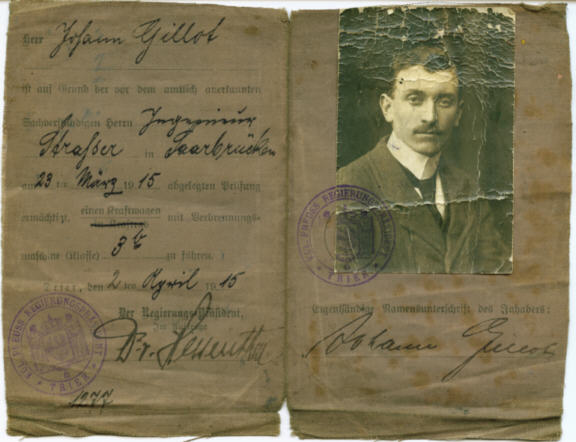 Herr Johann Gillot
ist auf Grund der vor dem amtlich anerkannten
Sachverständigen Herrn Ingenieur
Straßer in Saarbrücken
am 23 ten März 1915 abgelegten Prüfung
ermächtigt, einen Kraftwagen mit Verbrennungs-
maschine (Klasse) 3b zu führen.
Trier, den 2 ten April 1915
Der Regierungs-Präsident,
Im Auftrage
Dr.
1277
KGL. PREUSS. REGIERUNGS-PRÄSIDENT
* TRIER *
KGL. PREUSS. REGIERUNGS-PRÄSIDENT
* TRIER *
Eigenhändige Namensunterschrift des Inhabers:
Johann Gillot